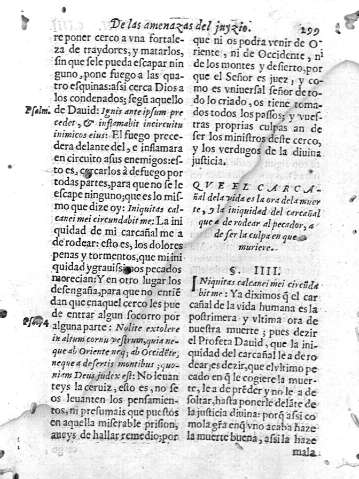 De las amenazas del juyzio. 299
re poner cerco a vna fortale-
za de traydores, y matarlos,
sin que se le pueda escapar nin
guno, pone fuego a las qua-
tro esquinas: asi cerca Dios a
los condenados; segū aquello
Psalm. de Dauid: Ignis ante ipsum pre
cedet, & inflamabit incircuitu
inimicos eius: El fuego prece-
dera delante del, e inflamara
en circuito a sus enemigos: es-
to es, cercarlos à de fuego por
todas partes, para que no se le
escape ninguno; que es lo mis-
mo que dize oy: Iniquitas cal-
canei mei circundabit me: La ini
quidad de mi carcañal me a
de rodear: esto es, los dolores
penas y tormentos, que mi ini
quidad y grauissimos pecados
morecian: Y en otro lugar los
desengaña, para que no entiē
dan que en aquel cerco les pue
de entrar algun socorro por
Psal. 74. alguna parte: Nolite extolere
in altum cornu vestrum, quia ne-
que ab Oriente neq; ab Occidēte,
neque a desertis montibus; quo-
niam Deus judex est: No leuan
teys la ceruiz, esto es, no se
os leuanten los pensamien-
tos, ni presumais que puestos
en aquella miserable prision,
aueys de hallar remedio; por
que ni os podra venir de O-
riente, ni de Occidente, ni
de los montes y desierto, por
que el Señor es juez, y co-
mo es vniuersal señor de to-
do lo criado, os tiene toma-
dos todos los passos; y vues-
tras proprias culpas an de
ser los ministros deste cerco,
y los verdugos de la diuina
justicia.
QVE EL CARCA-
ñal de la vida es la ora de la muer
te, y la iniquidad del carcañal
que a de rodear al pecador, a
de ser la culpa en que
muriere.
§. IIII.
Niquitas calcanei mei circūda
bit me: Ya diximos q̄ el car
cañal de la vida humana es la
postrimera y vltima ora de
nuestra muerte; pues dezir
el Profeta Dauid, que la ini-
quidad del carcañal le a de ro
dear: es dezir, que el vltimo pe
cado en q̄ le cogiere la muer-
te, le a de prēder y no le a de
soltar, hasta ponerle delāte de
la justicia diuina: porq̄ asi co
mo la grã en q̄ vno acaba haze
la muerte buena, asi la haze
mala